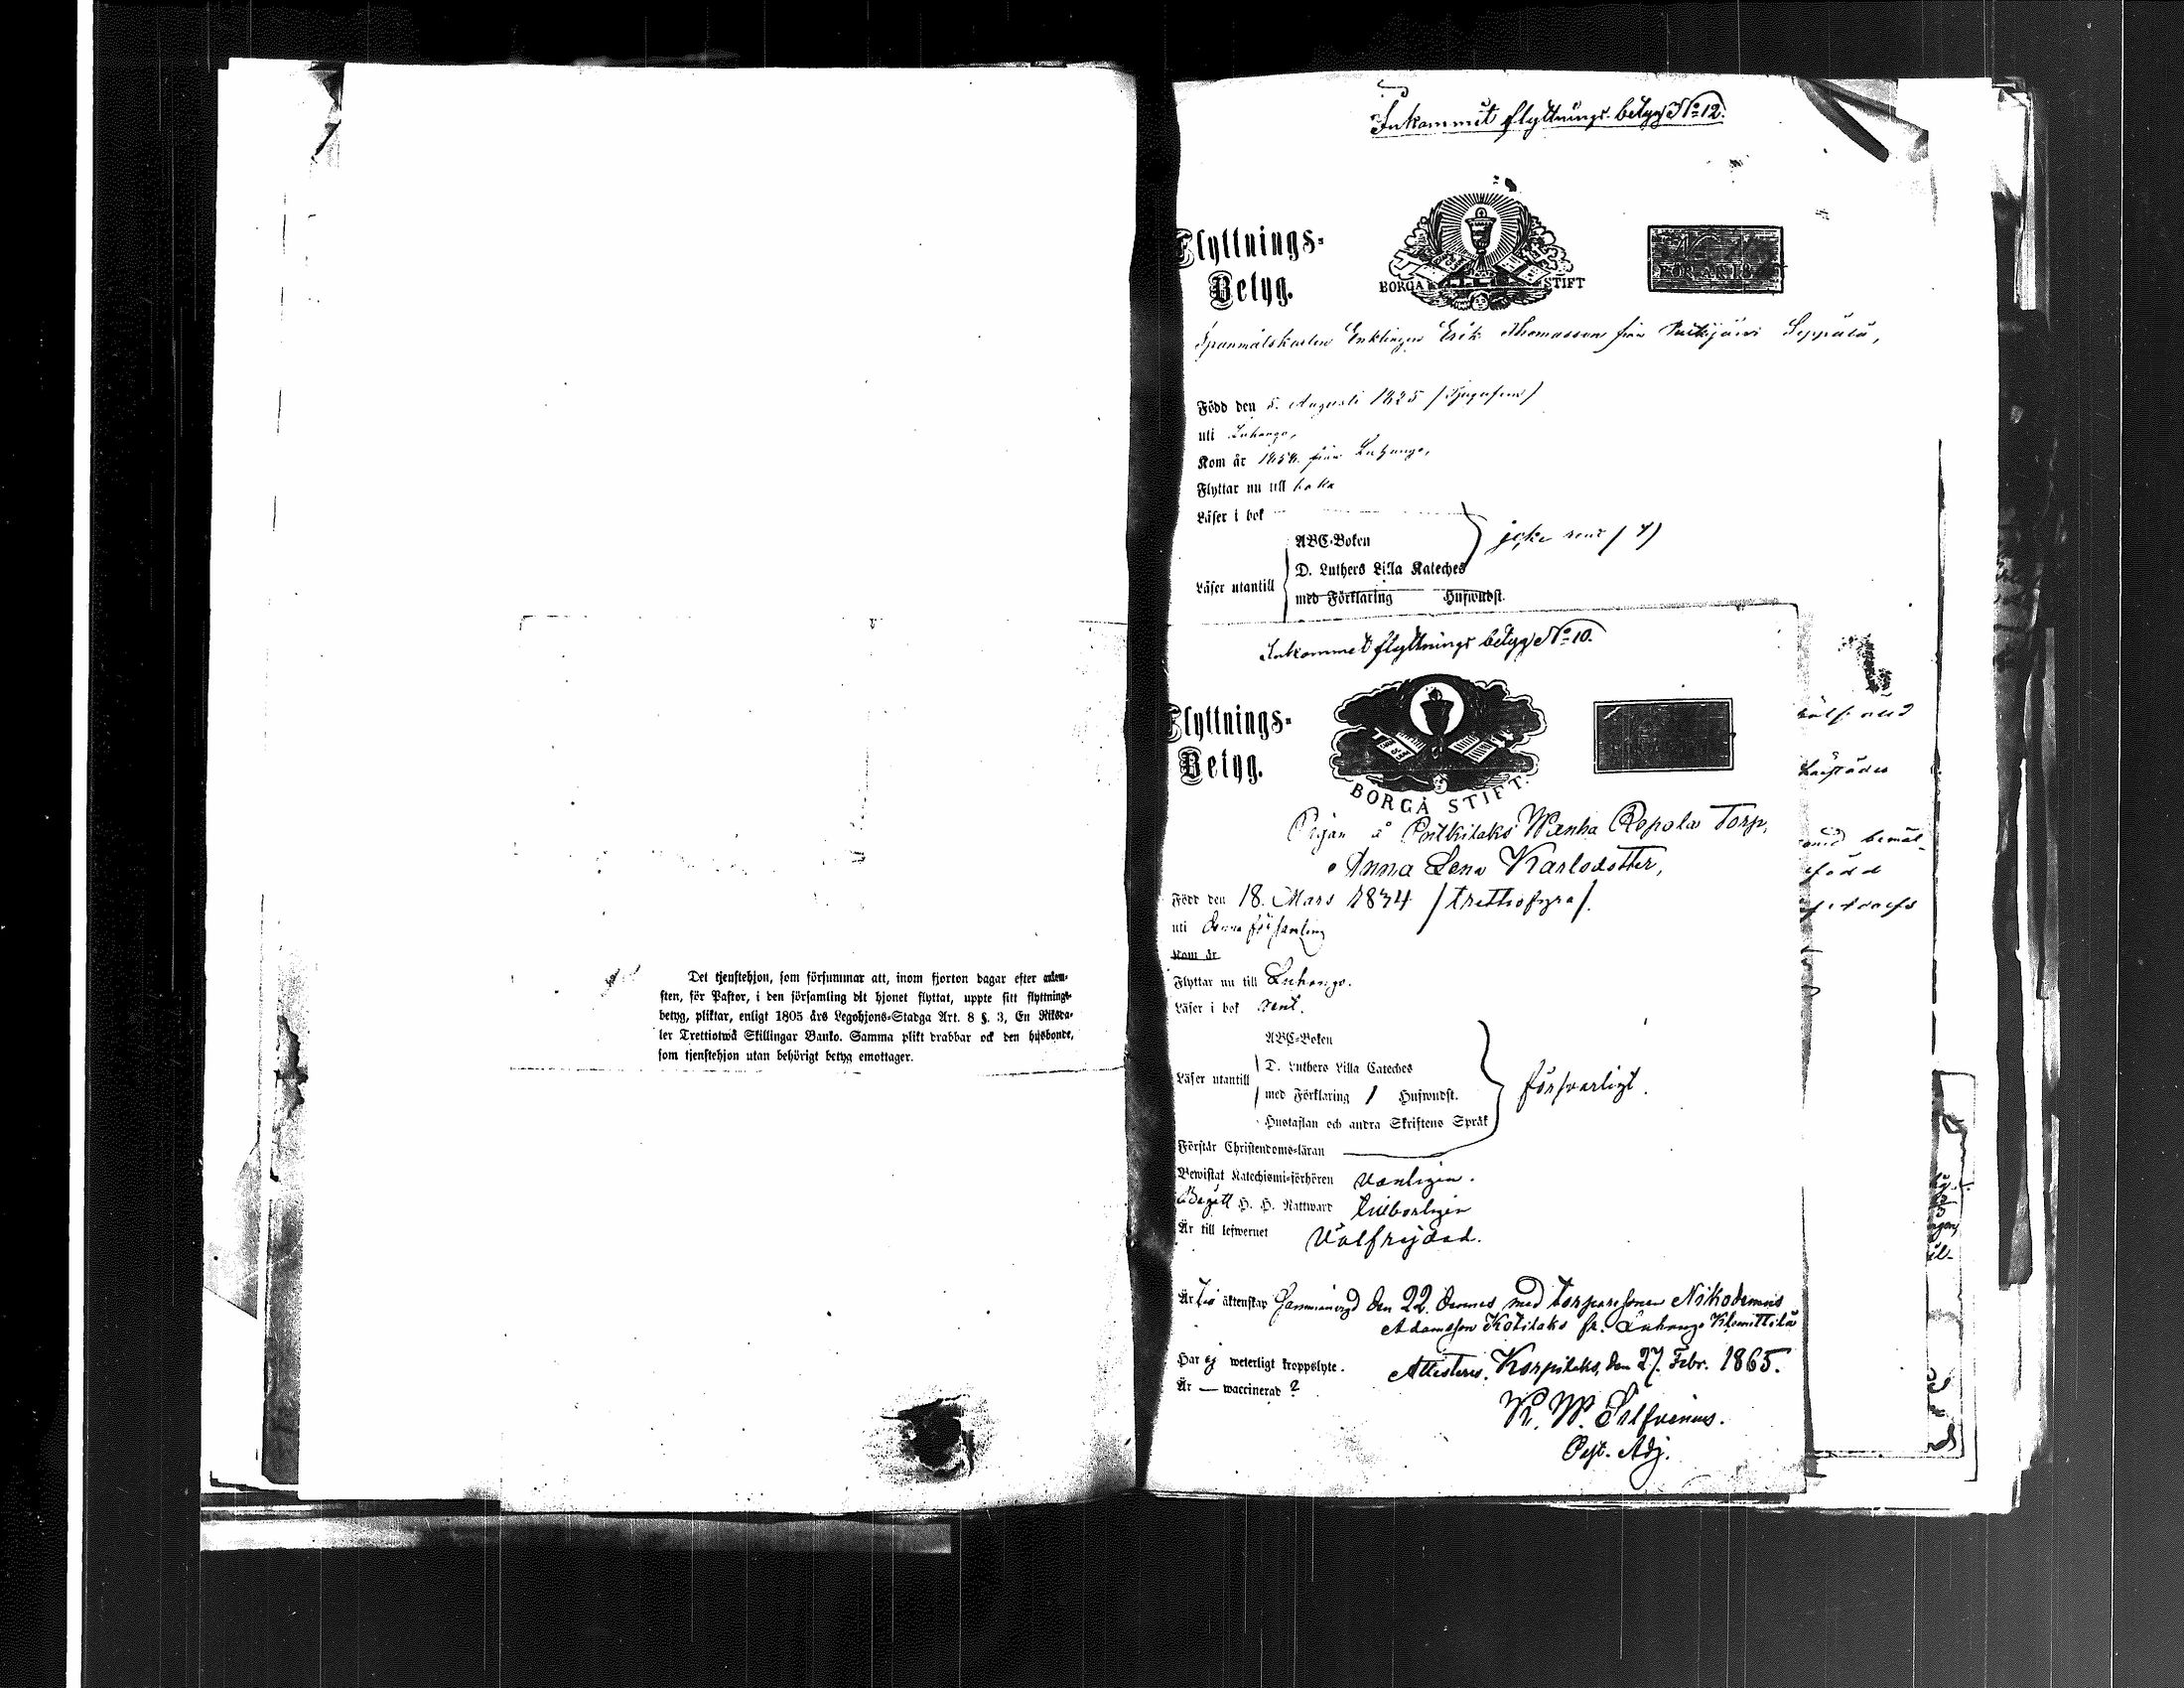 Det tjenstehjon, som försummar att, inom fjorton dagar efter ankom-
sten, för Pastor, i den församling dit hjonet flyttat, uppte sitt flyttnings-
betyg, pliktar, enligt 1805 års Legohjons-Stadga Art. 8 §. 3, En Riksda-
ler Trettiotwå Skillingar Banko. Samma plikt drabbar ock den husbonde,
som tjenstehjon utan behörigt betyg emottager.
Inkommit flyttnings-betyg No 12.
Flyttnings-
Betyg.
BORGÅ STIFT
FÖR ÅR 18
Enklingen Erik Thomasson från Seppälä,
Född den 5. Augusti 1825
uti Luhango,
Kom år 1858. från Luhango,
Flyttar nu till
Läser i bok
ABC-Boken
D. Luthers Lilla Kateches
Läser utantill
med Förklaring Hufwudst.
icke rent
Inkommet flyttnings betyg No 10.
Flyttnings-
Betyg.
BORGÅ STIFT.
Pigan å Putkilaks Wanha Ropola Torp,
Anna Lena Karlsdotter,
Född den 18. Mars 1834 /trettiofyra/.
uti denna församling
Kom år
Flyttar nu till Luhango.
Läser i bok rent.
ABC-Boken
D. Luthers Lilla Cateches
Läser utantill
med Förklaring / Hufwudst.
försvarligt.
Hustaflan och andra Skriftens Språk
Förstår Christendoms-läran
Bewistat Katechismi-förhören vanligen.
Begått H. H. Nattward
Är till lefwernet Välfrejdad.
Är till äktenskap den 22. dennes med torparesonen Nikodemus
Adamsson Kotilaks fr. Luhango Klemettilä
Har ej weterligt kroppslyte. Attesteras, Korpilaks, den 27. Febr. 1865.
Är — waccinerad ?
K. W. Silfvenius.
Past. Adj.
med
född